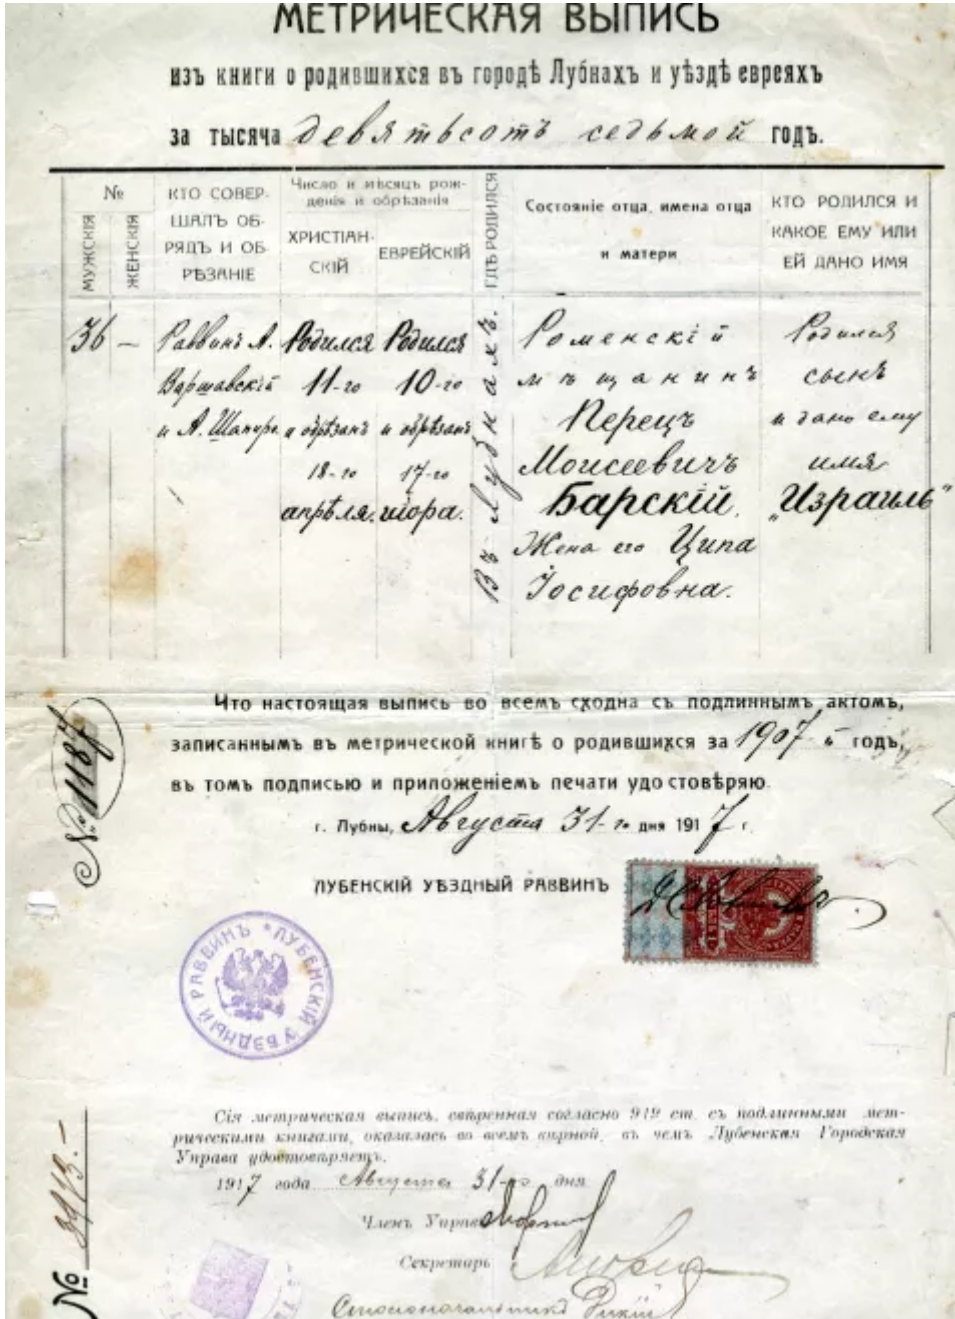 МЕТРИЧЕСКАЯ ВЫПИСЬ
изъ книги о родившихся въ городѣ Лубнахъ и уѣздѣ евреяхъ
за тысяча девятьсотъ седьмой годъ.
№
МУЖСКІЯ
ЖЕНСКІЯ
КТО СОВЕР-
ШАЛЪ ОБ-
РЯДЪ И ОБ-
РѢЗАНІЕ
Число и мѣсяцъ рож-
денія и обрѣзанія
ХРИСТІАН-
СКІЙ
ЕВРЕЙСКІЙ
ГДѢ РОДИЛСЯ
Состояніе отца, имена отца
и матери
КТО РОДИЛСЯ И
КАКОЕ ЕМУ ИЛИ
ЕЙ ДАНО ИМЯ
36
—
Раввинъ А.
Варшавскій
и А. Шапиро
Родился
11-го
и обрѣзан
18-го
апрѣля.
Родился
10-го
и обрѣзан
17-го
ійора.
Въ Лубнахъ.
Роменскій
мѣщанинъ
Перецъ
Моисеевичъ
Барскій.
Жена его Ципа
Іосифовна.
Родился
сынъ
и дано ему
имя
„Израиль"
Что настоящая выпись во всемъ сходна съ подлиннымъ актомъ,
записаннымъ въ метрической книгѣ о родившихся за 1907 й годъ,
въ томъ подписью и приложеніемъ печати удостовѣряю.
г. Лубны, Августа 31-го дня 1917 г.
№ 1187
ЛУБЕНСКІЙ УѢЗДНЫЙ РАВВИНЪ
ЛУБЕНСКІЙ УѢЗДНЫЙ РАВВИНЪ
Сія метрическая выпись, свѣренная согласно 919 ст. съ подлинными мет-
рическими книгами, оказалась во всемъ вѣрной, въ чемъ Лубенская Городская
Управа удостовѣряетъ.
1917 года Августа 31-го дня
Членъ Управы
Секретарь
Столоначальникъ
№ 3913.-